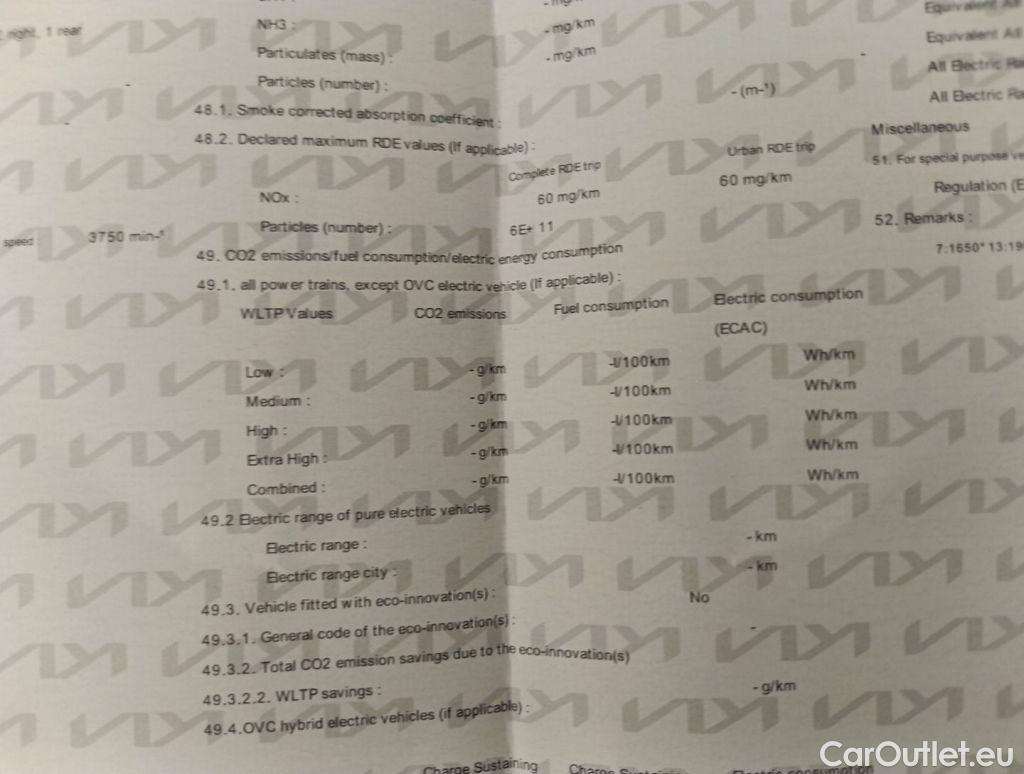 right, 1 rear
NH3 :
- mg/km
Particulates (mass) :
- mg/km
Particles (number) :
-
-
48.1. Smoke corrected absorption coefficient :
- (m-¹)
48.2. Declared maximum RDE values (If applicable) :
Complete RDE trip
Urban RDE trip
NOx :
60 mg/km
60 mg/km
Particles (number) :
6E+ 11
speed :
3750 min-¹
49. CO2 emissions/fuel consumption/electric energy consumption
49.1. all power trains, except OVC electric vehicle (If applicable) :
WLTP Values
CO2 emissions
Fuel consumption
Electric consumption
(ECAC)
Low :
- g/km
-l/100km
Wh/km
Medium :
- g/km
-l/100km
Wh/km
High :
- g/km
-l/100km
Wh/km
Extra High :
- g/km
-l/100km
Wh/km
Combined :
- g/km
-l/100km
Wh/km
49.2 Electric range of pure electric vehicles
Electric range :
- km
Electric range city :
- km
49.3. Vehicle fitted with eco-innovation(s) :
No
49.3.1. General code of the eco-innovation(s) :
-
49.3.2. Total CO2 emission savings due to the eco-innovation(s)
49.3.2.2. WLTP savings :
- g/km
49.4.OVC hybrid electric vehicles (if applicable) :
Charge Sustaining
Equivalent All
Equivalent All
All Electric Ra
All Electric Ra
Miscellaneous
51. For special purpose ve
Regulation (E
52. Remarks :
7:1650* 13:19
KIA
CarOutlet.eu